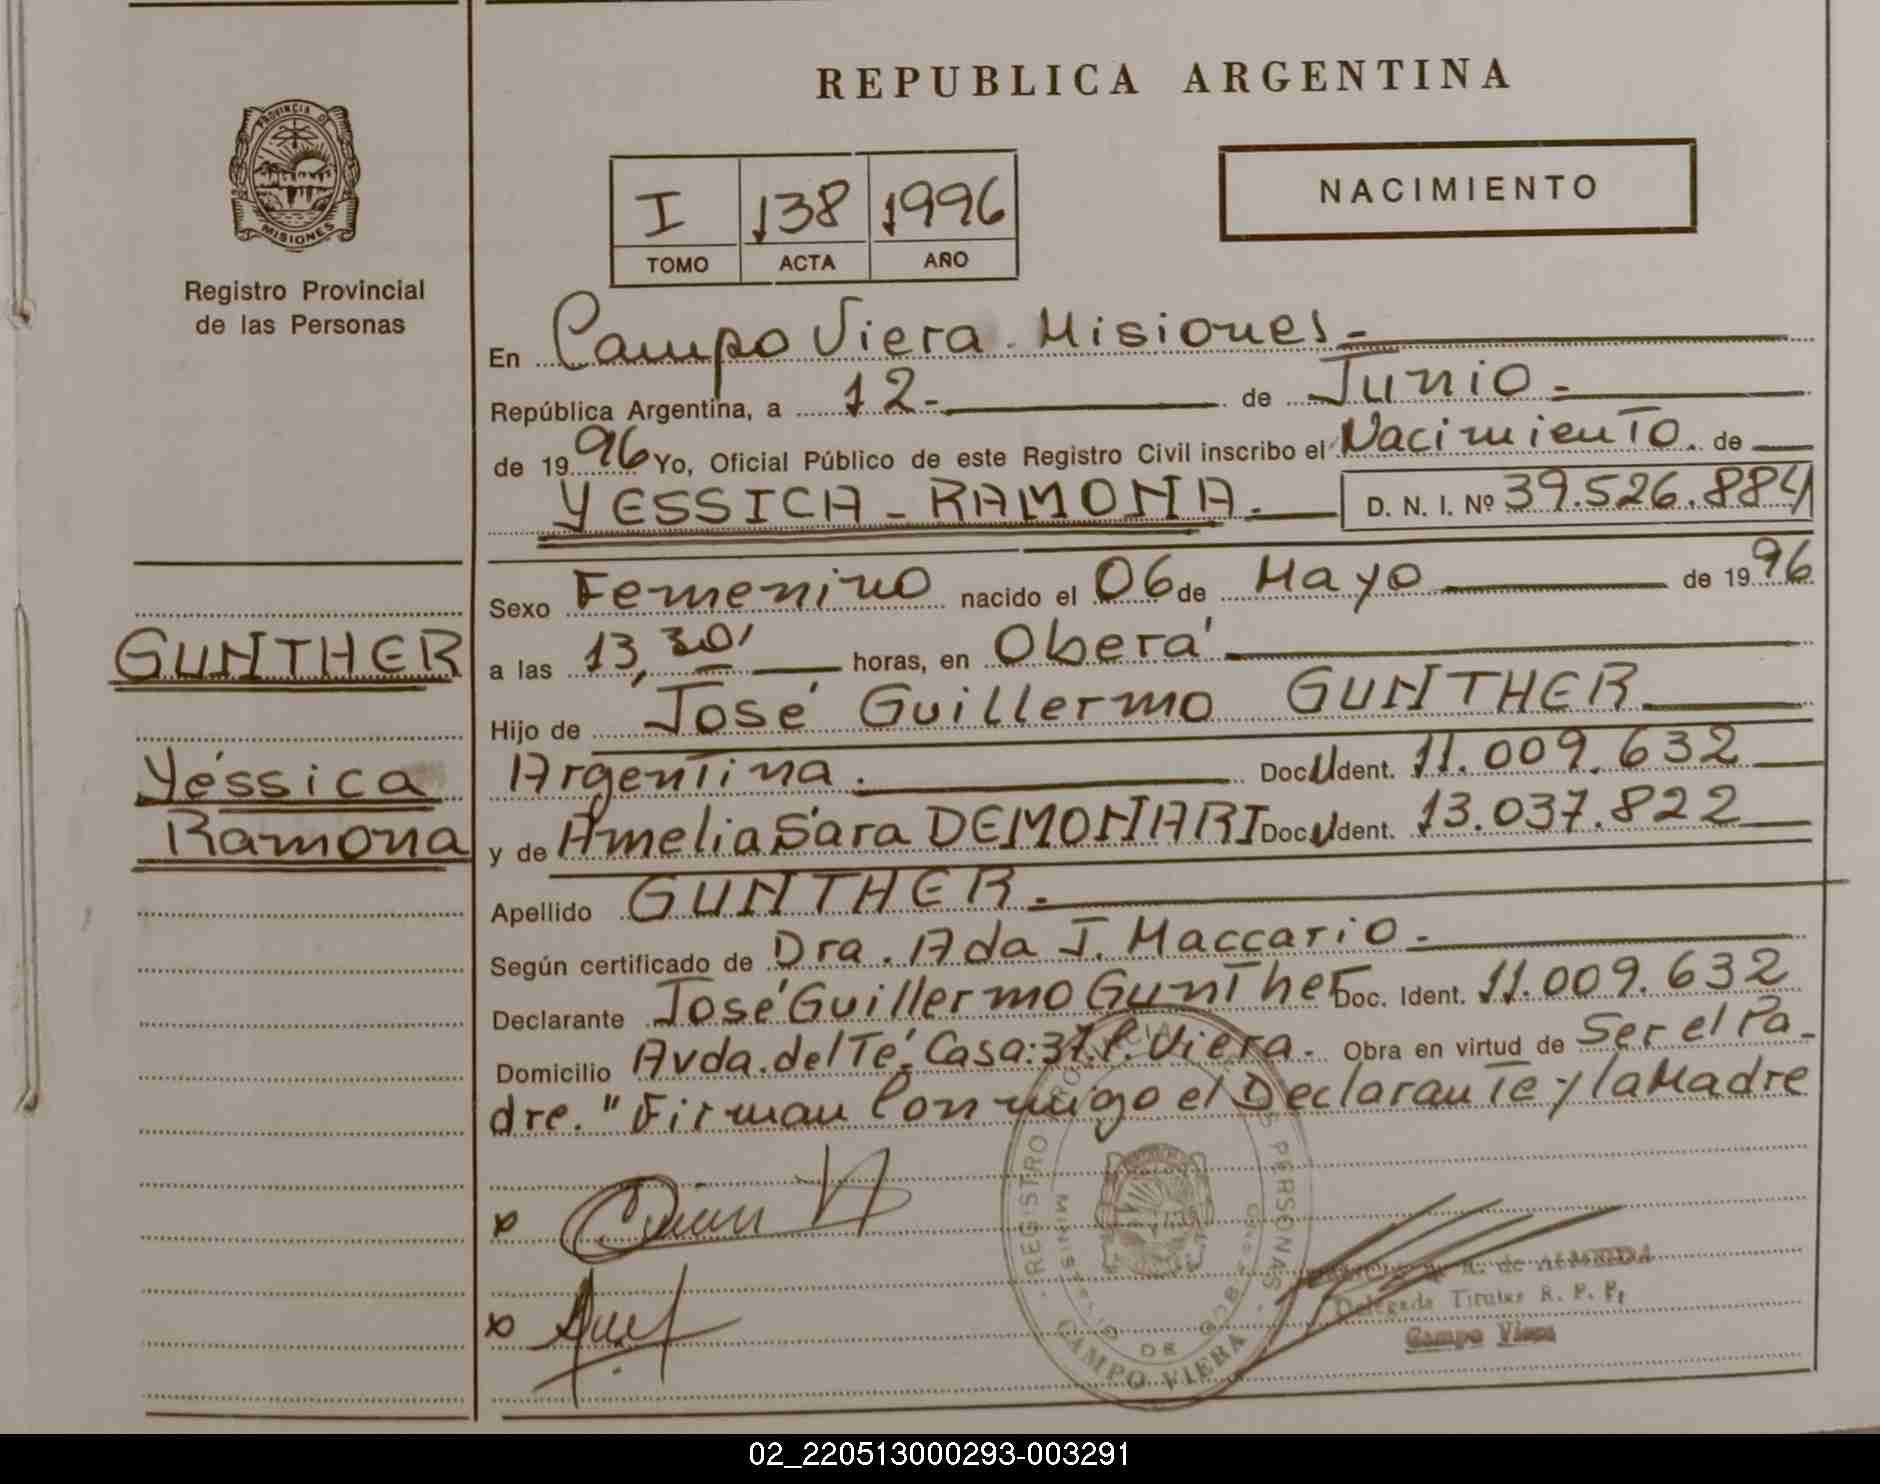 REPUBLICA ARGENTINA
PROVINCIA DE
MISIONES
Registro Provincial
de las Personas
I 138 1996
TOMO ACTA AÑO
NACIMIENTO
En Campo Viera - Misiones -
República Argentina, a 12 - de Junio -
de 1996 Yo, Oficial Público de este Registro Civil inscribo el Nacimiento de
YESSICA - RAMONA - D. N. I. Nº 39.526.884
Sexo Femenino nacido el 06 de Mayo de 1996
GUNTHER
a las 13,30' horas, en Oberá
Hijo de José Guillermo GUNTHER
Yéssica
Argentina. Doc. Ident. 11.009.632
Ramona
y de Amelia Sara DEMONARI Doc. Ident. 13.037.822
Apellido GUNTHER -
Según certificado de Dra. Ada J. Maccario -
Declarante José Guillermo Gunther Doc. Ident. 11.009.632
Domicilio Avda. del Té - Casa: 37. C. Viera - Obra en virtud de Ser el Pa-
dre. " Firman Conmigo el Declarante y la Madre
REGISTRO PROVINCIAL DE LAS PERSONAS
CAMPO VIERA
de ALMEIDA
Delegada Titular R. P. P.
Campo Viera
02_220513000293-003291